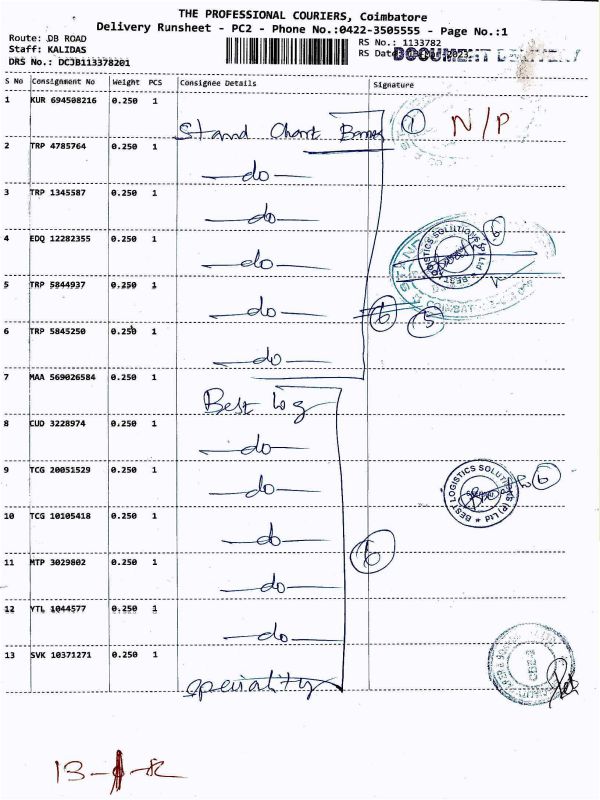 THE PROFESSIONAL COURIERS, Coimbatore
Delivery Runsheet - PC2 - Phone No.:0422-3505555 - Page No.:1
Route: DB ROAD
Staff: KALIDAS
DRS No.: DCJB113378201
RS No.: 1133782
RS Date
S No Consignment No Weight PCS Consignee Details Signature
1 KUR 694508216 0.250 1 Stand Chart ① N/P
2 TRP 4785764 0.250 1 —do—
3 TRP 1345587 0.250 1 —do—
4 EDQ 12282355 0.250 1 —do— ⑥
5 TRP 5844937 0.250 1 —do— ⑥
6 TRP 5845250 0.250 1 —do—
7 MAA 569026584 0.250 1 Best log
8 CUD 3228974 0.250 1 —do—
9 TCG 20051529 0.250 1 —do— ⑥
10 TCG 10105418 0.250 1 —do—
11 MTP 3029802 0.250 1 —do— ⑥
12 YTL 1044577 0.250 1 —do—
13 SVK 10371271 0.250 1 speciality
BEST LOGISTICS SOLUTIONS (P) Ltd
BEST LOGISTICS SOLUTIONS (P) Ltd